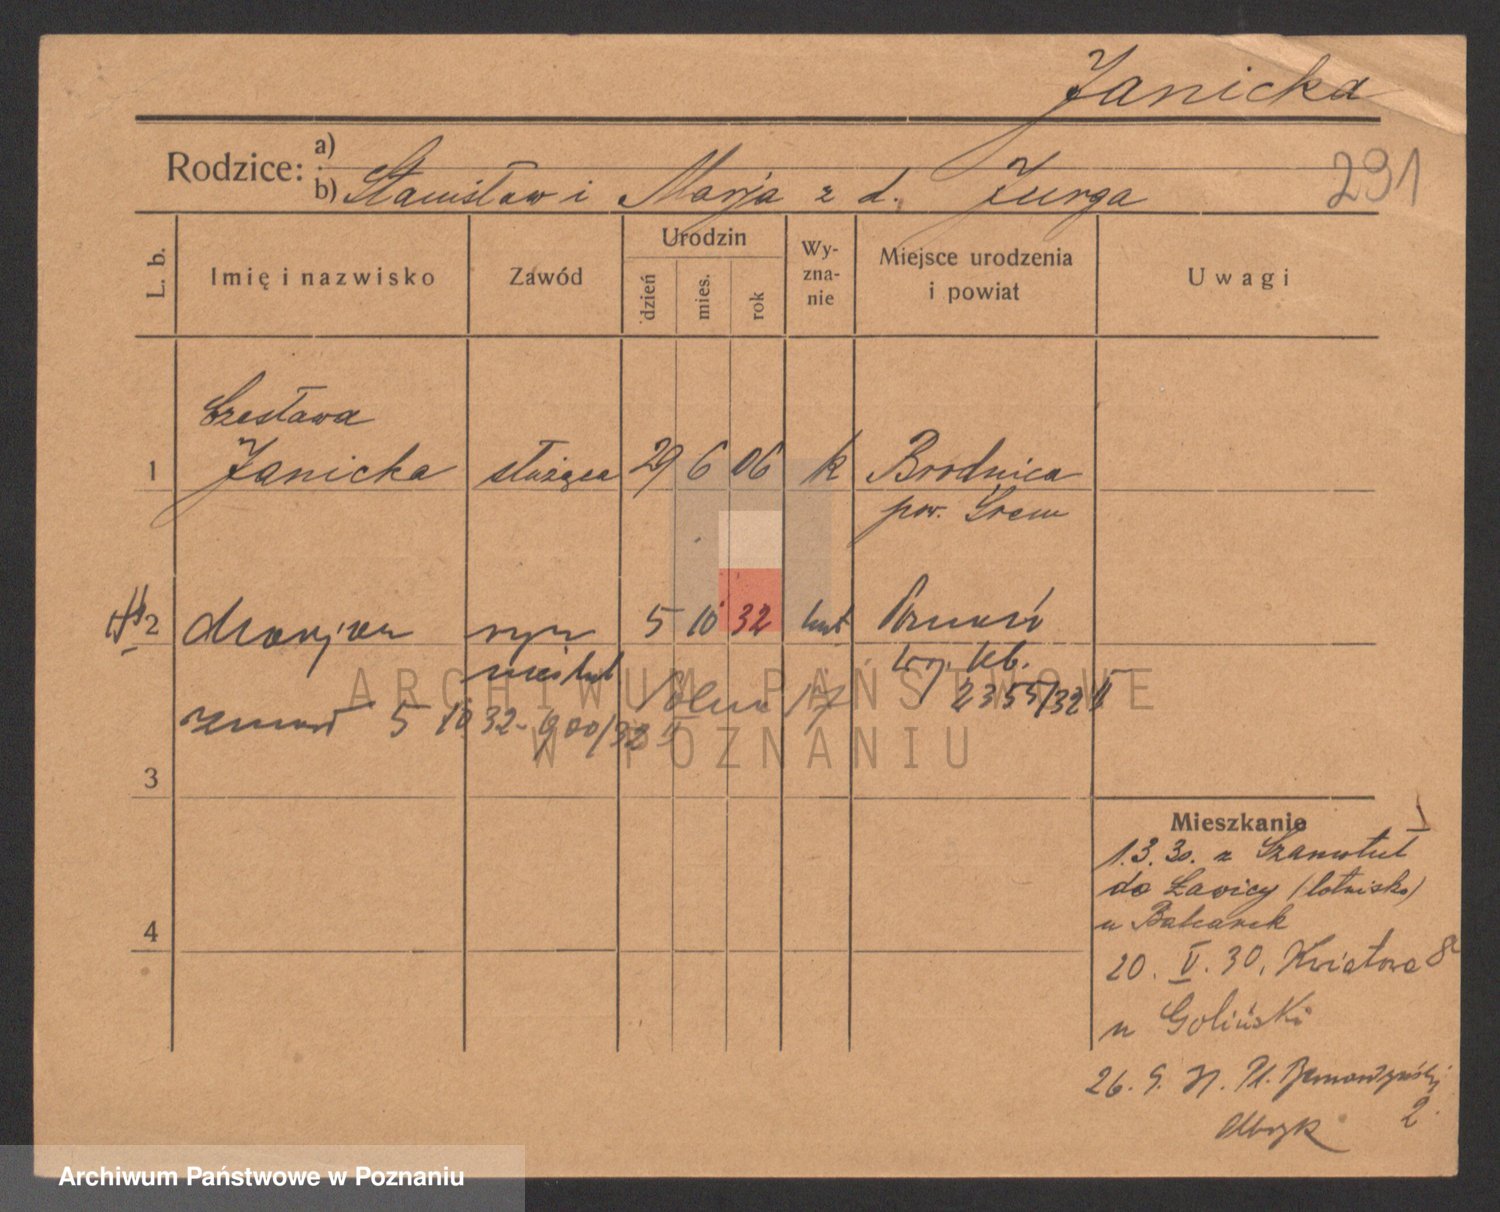 Janicka
Rodzice: a)
b) Stanisław i Marja z d. Jurga
291
L. b.
Imię i nazwisko
Zawód
Urodzin
dzień
mies.
rok
Wy-
zna-
nie
Miejsce urodzenia
i powiat
Uwagi
Czesława
1 Janicka służąca 29 6 06 k Brodnica
pow. Śrem
2 Marjan syn 5 10 32 kat Poznań
nieślub
2355/32 II
zmarł 5 10 32 - 900/32 II
3
Mieszkanie
1.3.30. z Szamotuł
do Ławicy (lotnisko)
u Balcarek
4
20. V. 30. Kwiatowa 8
u Goliński
26. 9. Pl. Bernardyński
2.
ARCHIWUM PAŃSTWOWE
W POZNANIU
Archiwum Państwowe w Poznaniu